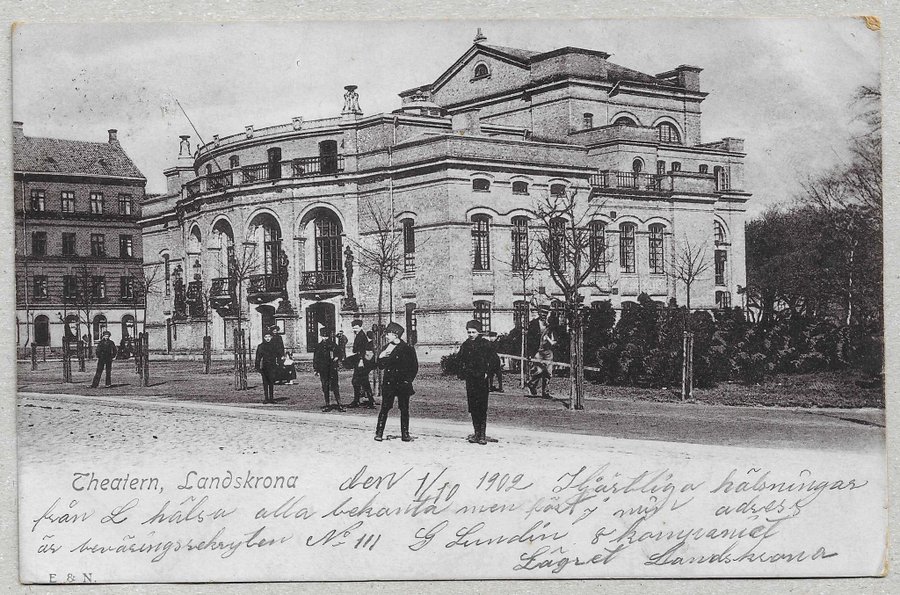 Theatern, Landskrona den 1/10 1902 Hjärtliga hälsningar
från L hälsa alla bekanta men först min adress
är beväringsrekryten No 111 G Lundin 8 kompaniet
Lägret Landskrona
E & N.